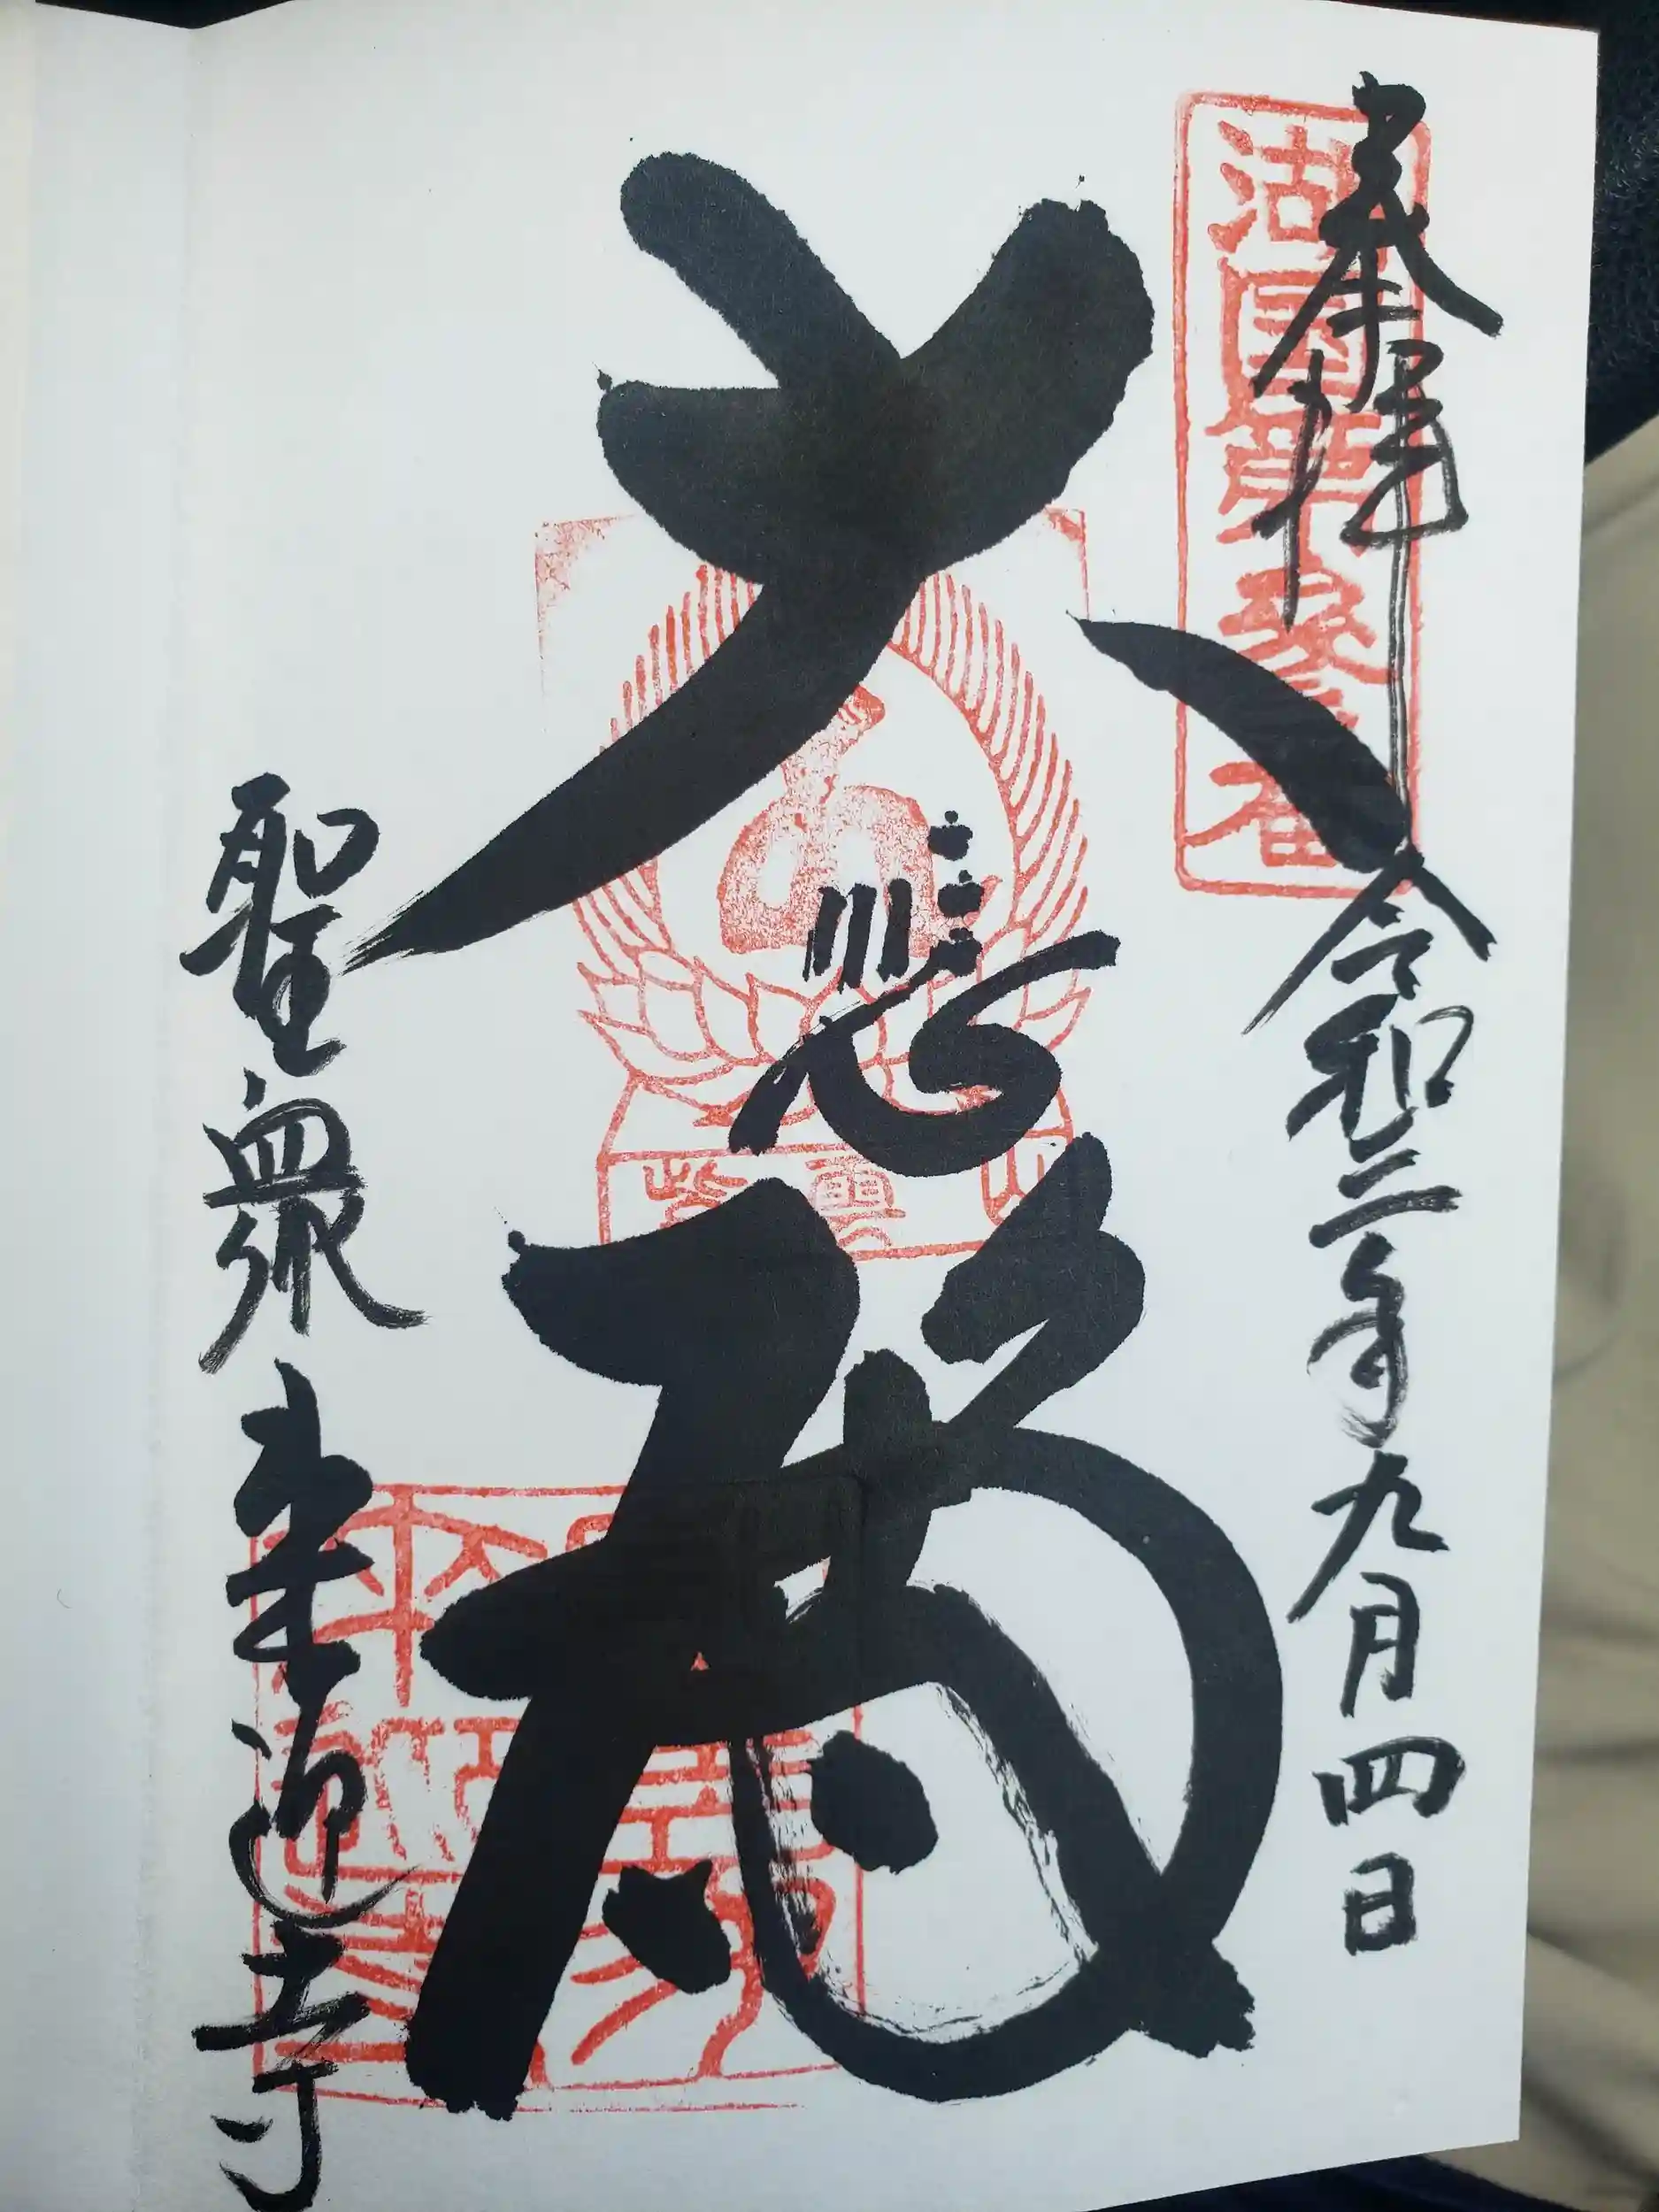 奉拝 令和二年九月四日
湖国第参番
大悲殿
紫雲山
聖衆来迎寺